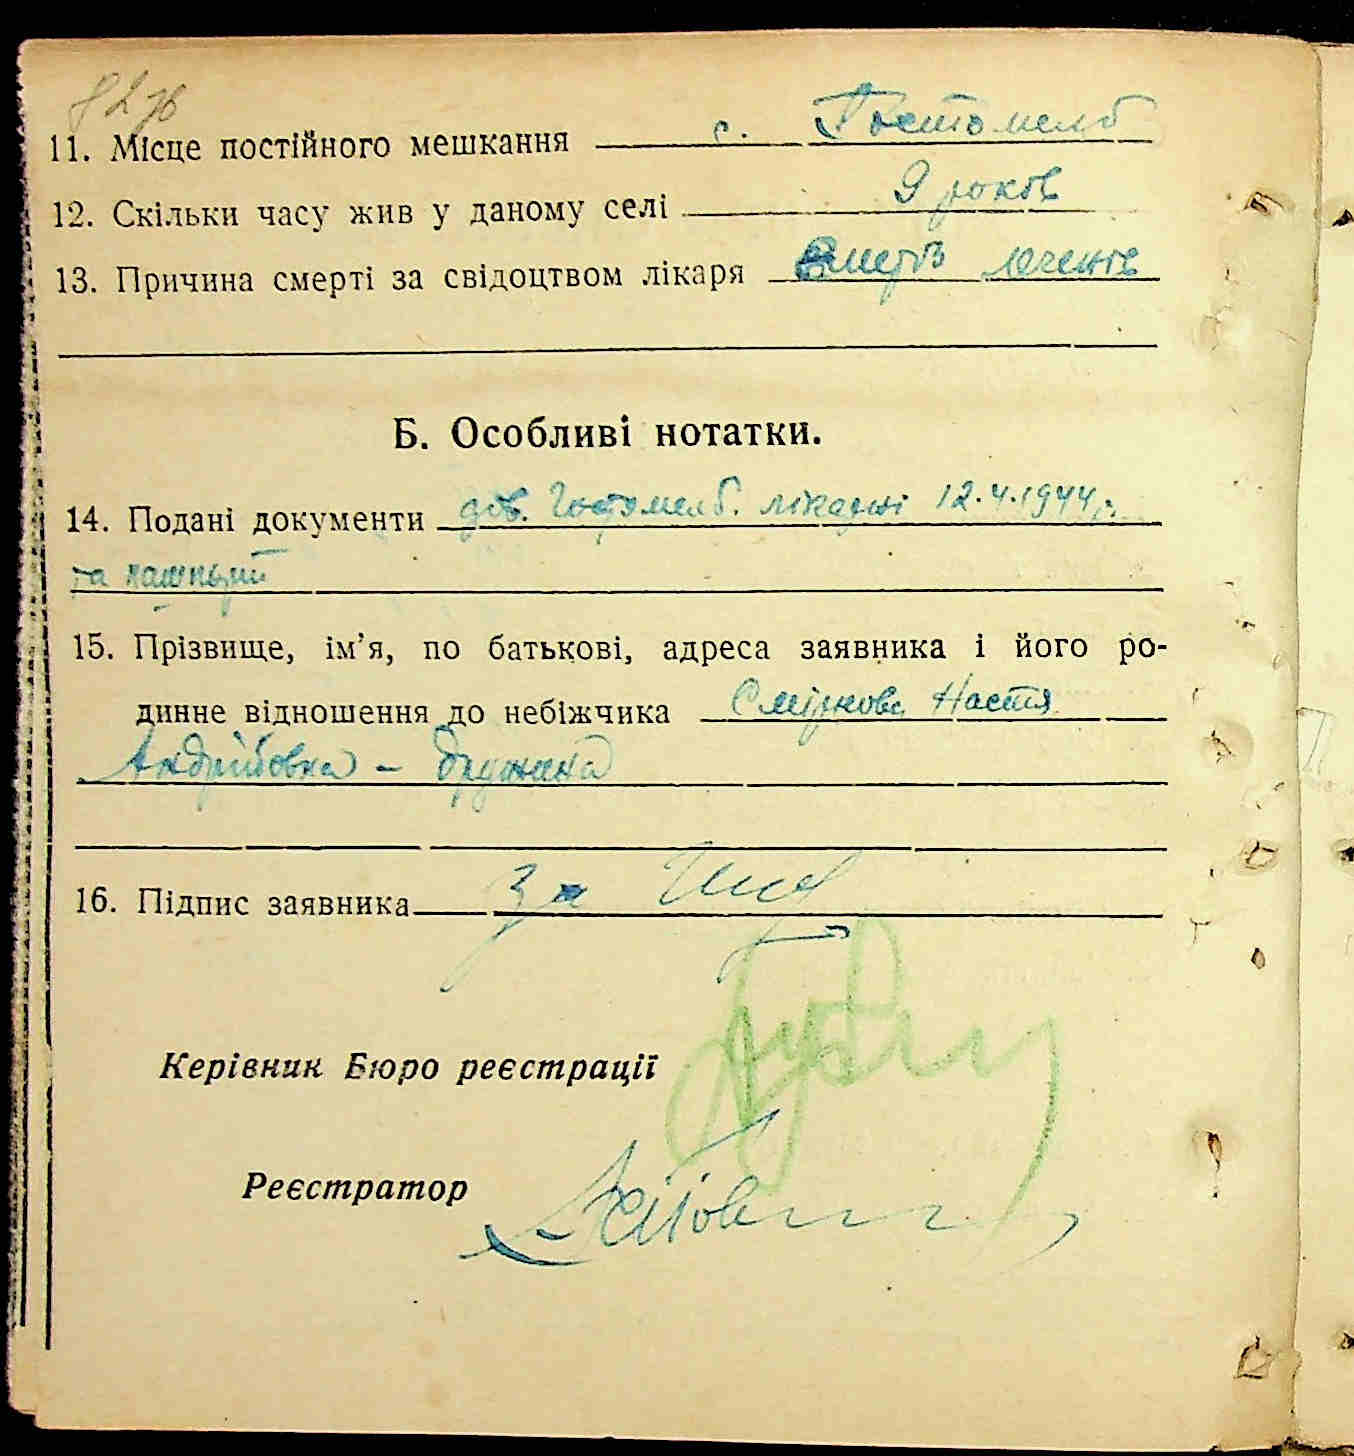 82 зв
11. Місце постійного мешкання с. Гостомель
12. Скільки часу жив у даному селі 9 років
13. Причина смерті за свідоцтвом лікаря
Б. Особливі нотатки.
14. Подані документи дов. Гостомел. лікарні 12.4.1944 р.
та пашпорт
15. Прізвище, ім’я, по батькові, адреса заявника і його ро-
динне відношення до небіжчика Смірнова Настя
Андріївовна - дружина
16. Підпис заявника За
Керівник Бюро реєстрації
Реєстратор